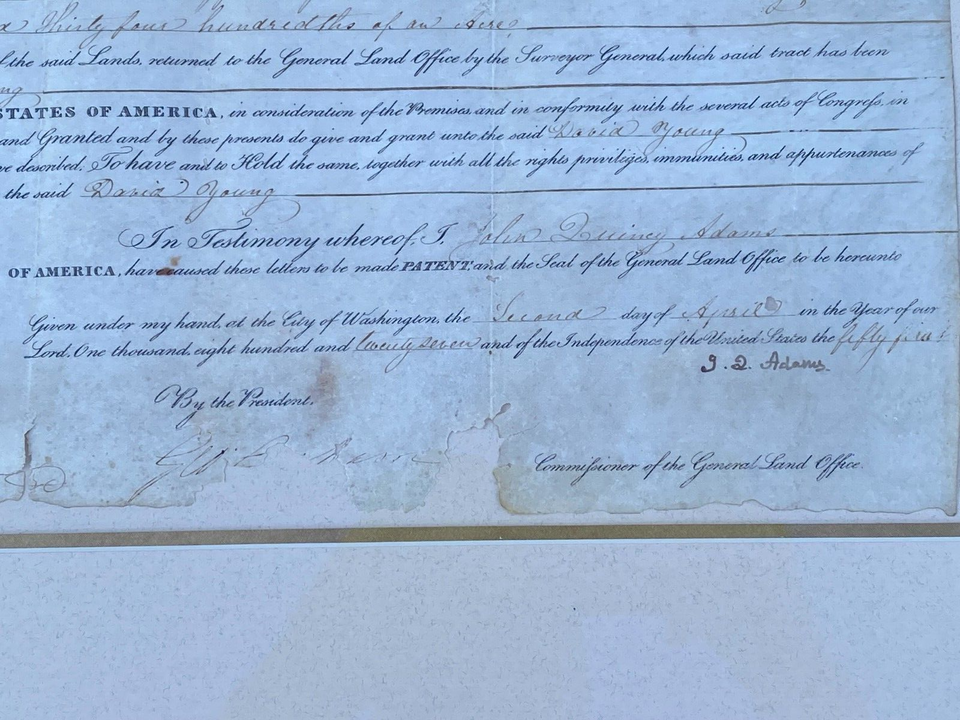 Thirty four hundredths of an Acre
of the said Lands, returned to the General Land Office by the Surveyor General, which said tract has been
STATES OF AMERICA, in consideration of the Premises, and in conformity with the several acts of Congress, in
and Granted and by these presents do give and grant unto the said David Young
described, To have and to Hold the same, together with all the rights, privileges, immunities, and appurtenances of
the said David Young
In Testimony whereof, I, John Quincy Adams
OF AMERICA, have caused these letters to be made PATENT, and the Seal of the General Land Office to be hereunto
Given under my hand, at the City of Washington, the Second day of April in the Year of our
Lord, One thousand, eight hundred and twenty seven and of the Independence of the United States the fifty first
J. Q. Adams.
By the President,
Commissioner of the General Land Office.